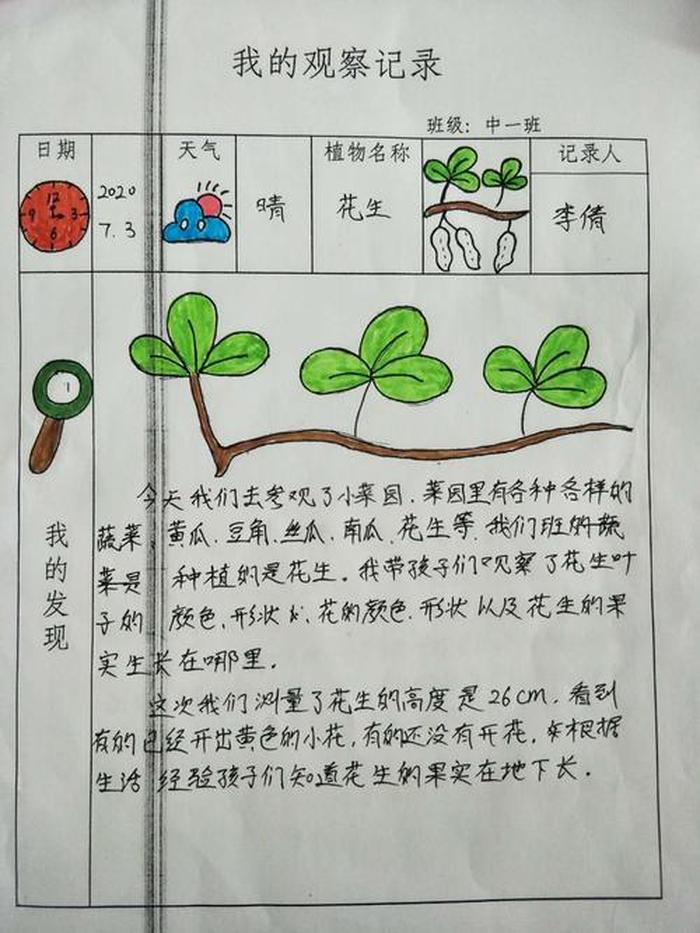 我的观察记录
班级：中一班
日期 天气 植物名称 记录人
12
9 3
6
2020
7.3
晴
花生
李倩
我的发现
今天我们去参观了小菜园、菜园里有各种各样的
蔬菜、黄瓜、豆角、丝瓜、南瓜、花生等、我们班的蔬
菜是 种植的是花生。我带孩子们观察了花生叶
子的 颜色、形状、花的颜色、形状以及花生的果
实生长在哪里。
这次我们测量了花生的高度是26cm、看到
有的已经开出黄色的小花，有的还没有开花，根据
生活 经验孩子们知道花生的果实在地下长。